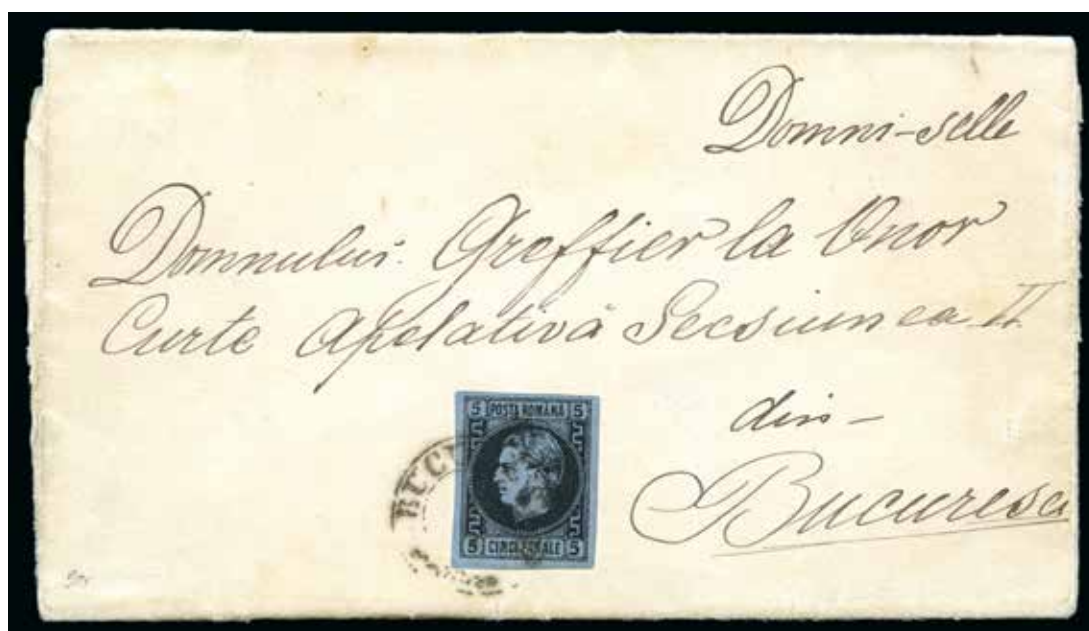 Domni-selle
Domnului Greffier la Onor
Curte Apelativă Secsiunea II
din-
Bucuresci
5 POSTA ROMANA 5
5 CINCI PARALE 5
BUCU